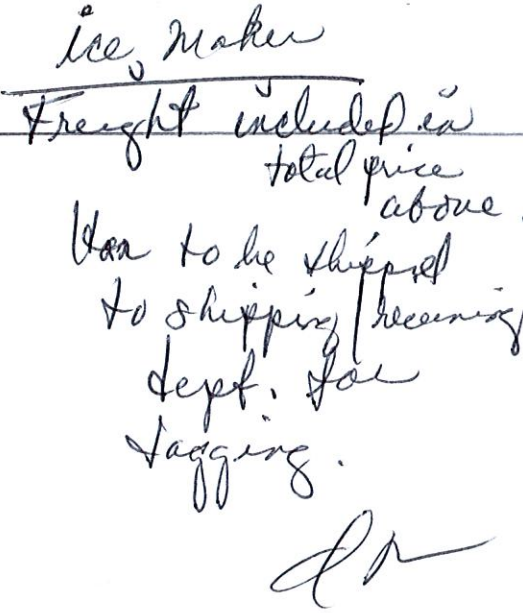 ice Maker
Freight included in
total price
above.
to be shipped
to shipping/receiving
dept. for
tagging.